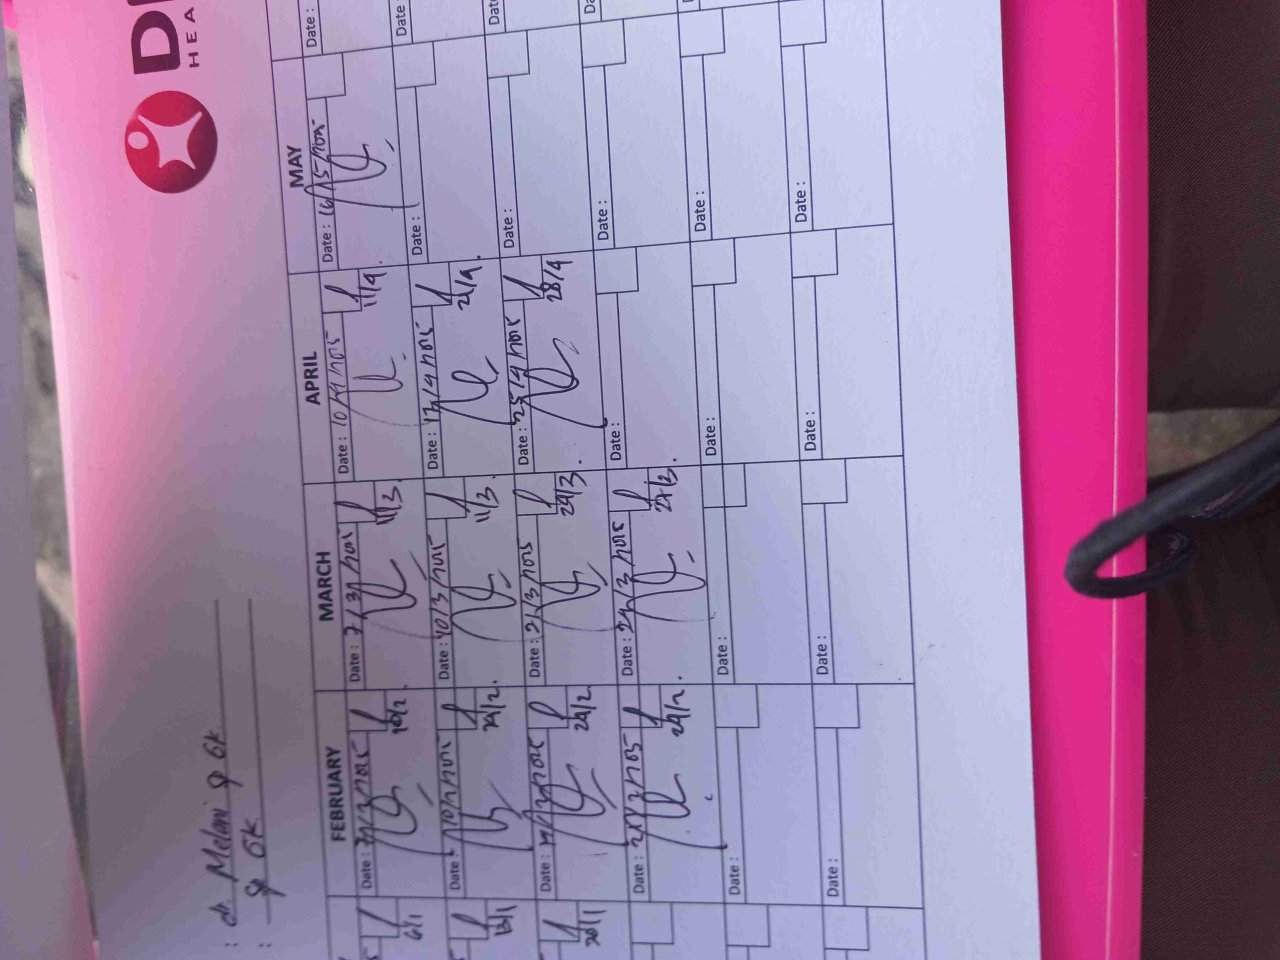 : dr. Melani Sp GK
: Sp GK
D
HEA
FEBRUARY MARCH APRIL MAY
Date : Date : 7/3/2025 Date : 10/4/2025 Date : 16/5/2025 Date :
6/1 11/3. 11/4.
Date : 10/2/2025 Date : 10/3/2025 Date : Date : Date
13/1 11/3. 21/4.
Date : Date : 21/3/2025 Date : 25/4/2025 Date : Dat
20/1 24/2 24/3. 28/4
Date : Date : 24/3/2025 Date : Date : Da
24/2. 27/3.
Date : Date : Date : Date :
Date : Date : Date : Date :